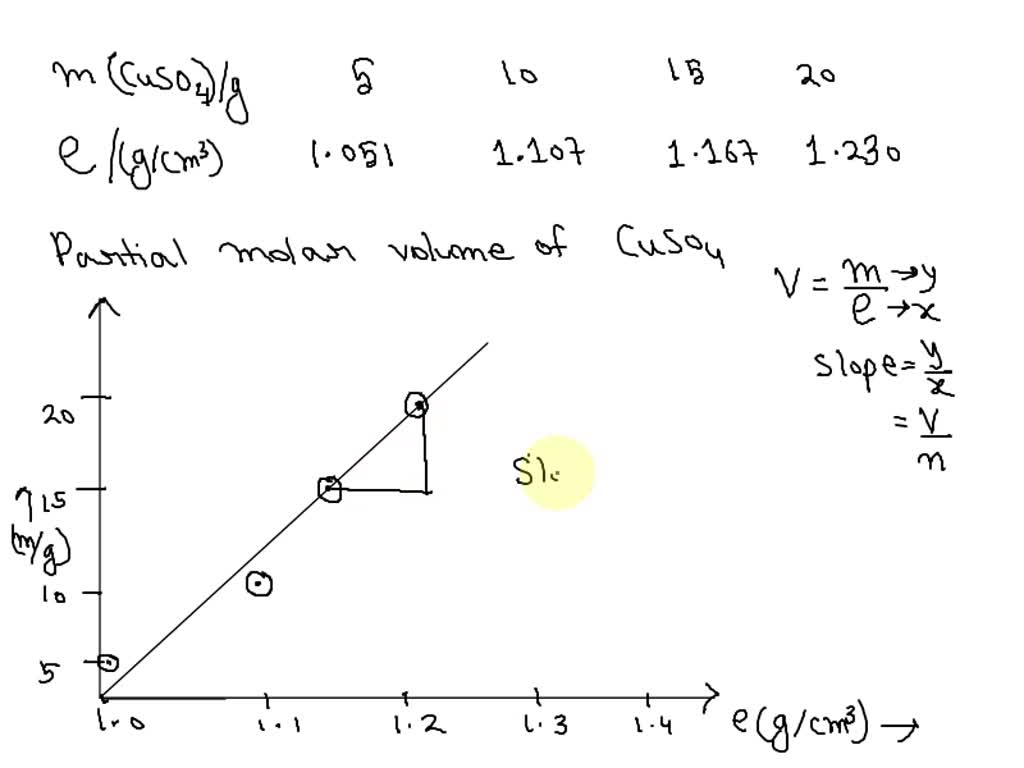 m(CuSO4)/g 5 10 15 20
e/(g/cm³) 1.051 1.107 1.167 1.230
Partial molar volume of CuSO4
V = m → y
e → x
slope = y/x
= V/n
20
15
(m/g)
10
5
Slo
1.0 1.1 1.2 1.3 1.4 e(g/cm³) →